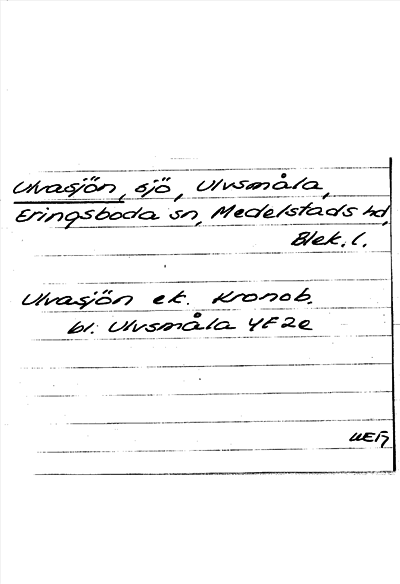 Ulvasjön, sjö, Ulvsmåla,
Eringsboda sn, Medelstads hd,
Blek. l.
Ulvasjön ek. Kronob.
bl. Ulvsmåla 4F2e